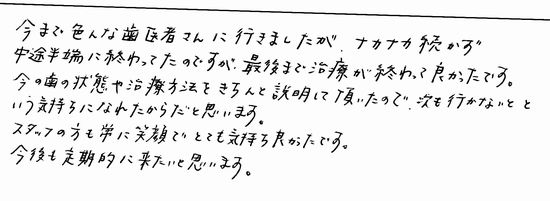 今まで色んな歯医者さんに行きましたが、ナカナカ続かず
中途半端に終わってたのですが、最後まで治療が終わって良かったです。
今の歯の状態や治療方法をきちんと説明して頂いたので、次も行かないとと
いう気持ちになれたからだと思います。
スタッフの方も常に笑顔でとても気持ち良かったです。
今後も定期的に来たいと思います。